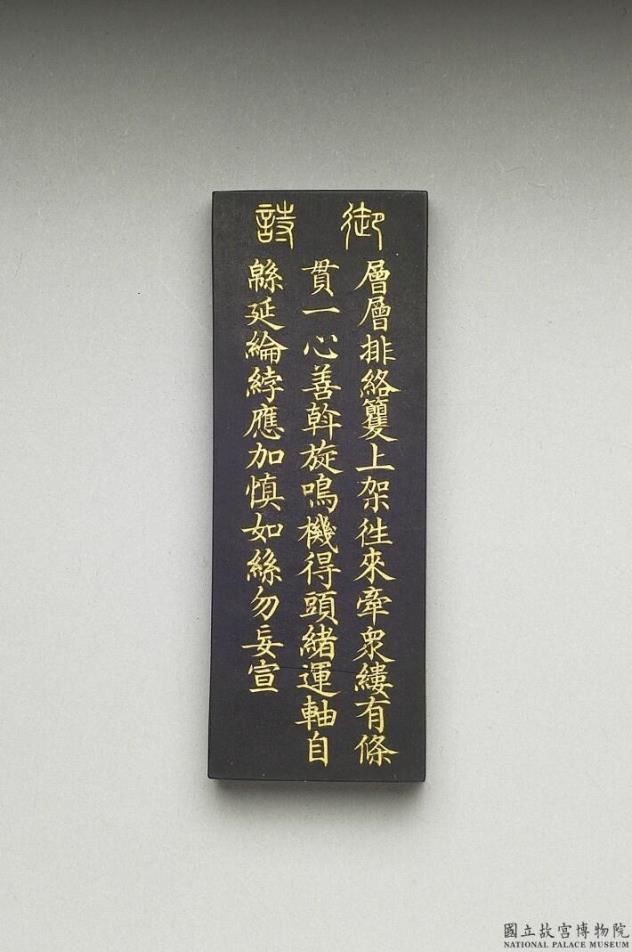 御詩
層層排絡籰上架徃來牽衆縷有條
貫一心善斡旋鳴機得頭緒運軸自
緜延綸綍應加慎如絲勿妄宣
國立故宮博物院
NATIONAL PALACE MUSEUM